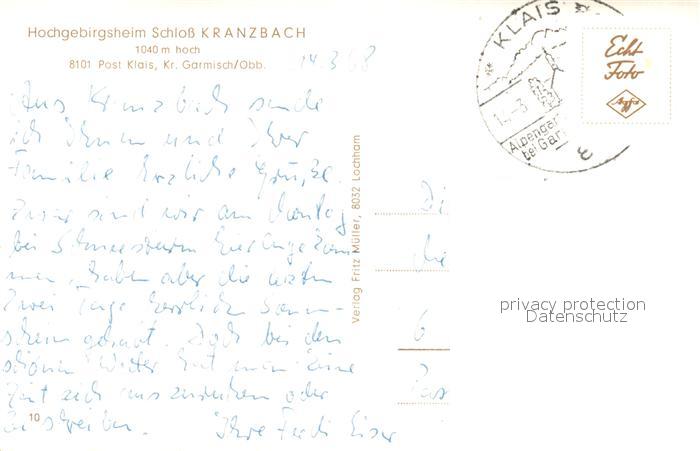 Hochgebirgsheim Schloß KRANZBACH
1040 m hoch
8101 Post Klais, Kr. Garmisch/Obb.
14.3.68
Aus Kranzbach sende
ich Ihnen und Ihrer
Familie herzliche Grüße.
sind wir am Montag
bei Schneesturm hier angekom
men, haben aber die ersten
zwei Tage herrlich Sonn-
schein gehabt. Doch bei dem
schönen Wetter hat man keine
Zeit sich auszuruhen oder
zu schreiben.
Ihre
10
Verlag Fritz Müller, 8032 Lochham
KLAIS
Echt
Foto
Agfa
Di
die
6
privacy protection
Datenschutz